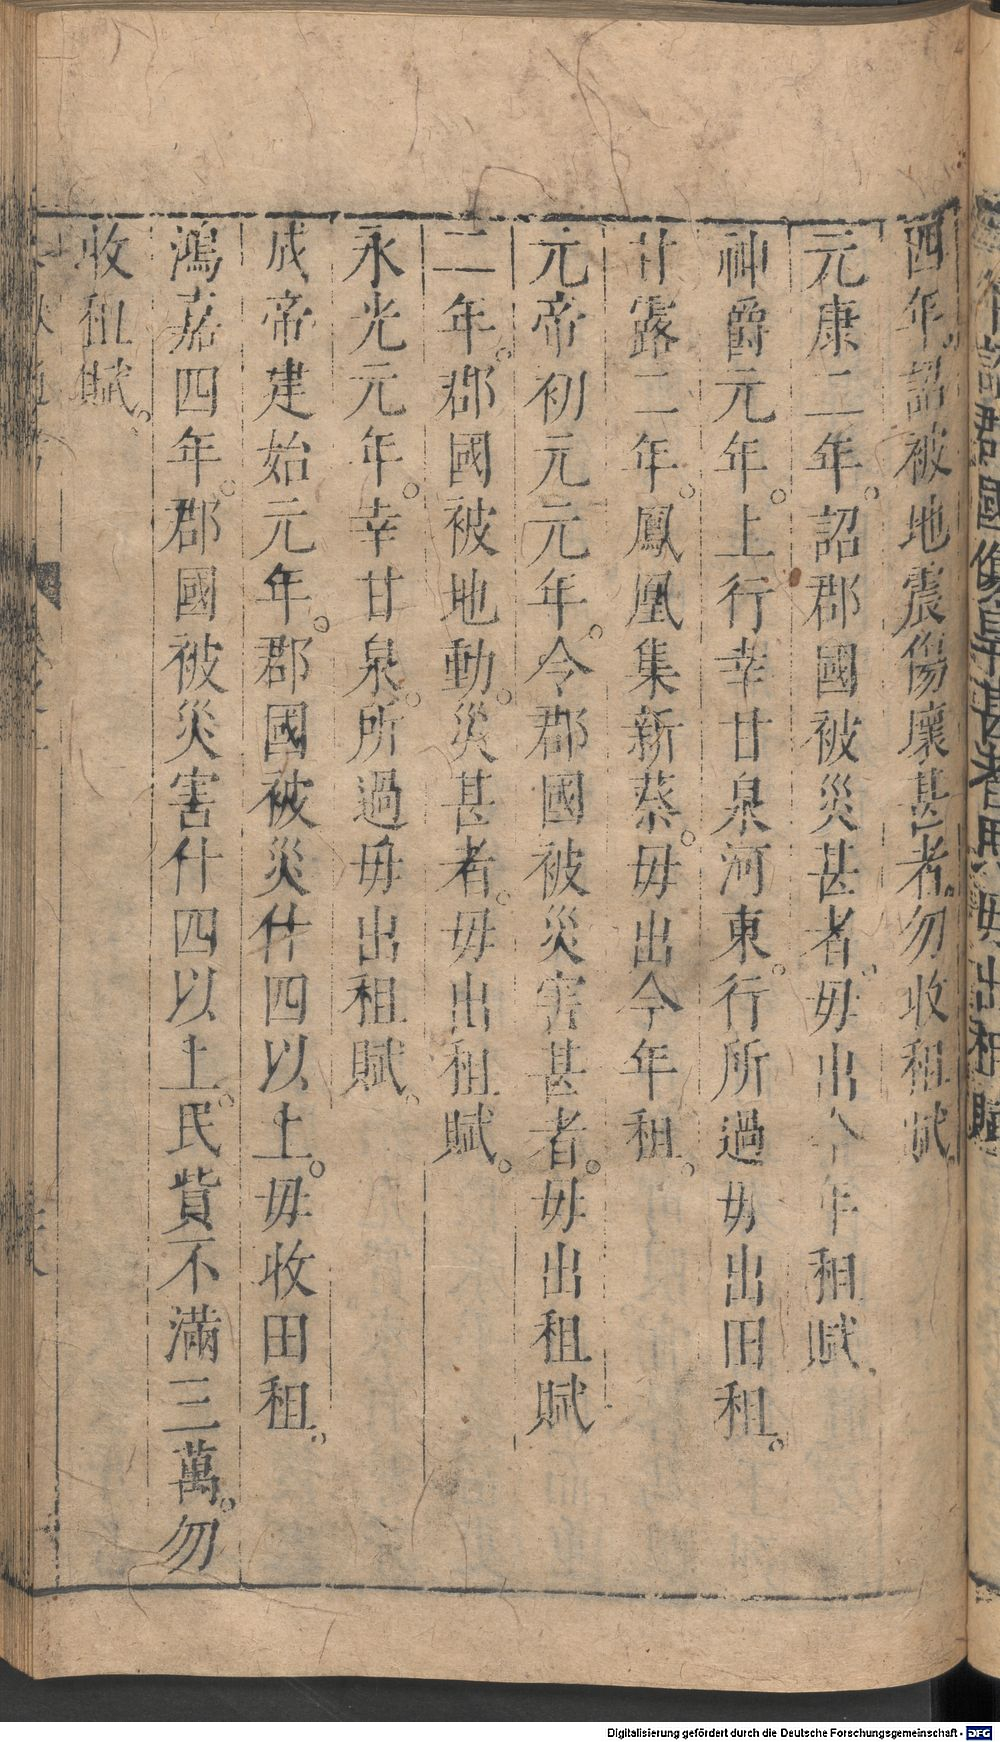 四年。詔被地震傷壞甚者。勿收租賦。
元康二年。詔郡國被災甚者。毋出今年租賦。
神爵元年。上行幸甘泉河東。行所過毋出田租。
甘露二年。鳳凰集新蔡。毋出今年租。
元帝初元元年。令郡國被災害甚者。毋出租賦
二年。郡國被地動。災甚者。毋出租賦。
永光元年。幸甘泉。所過毋出租賦。
成帝建始元年。郡國被災什四以上。毋收田租。
鴻嘉四年。郡國被災害什四以上。民貲不滿三萬。勿
收租賦。
Digitalisierung gefördert durch die Deutsche Forschungsgemeinschaft - DFG